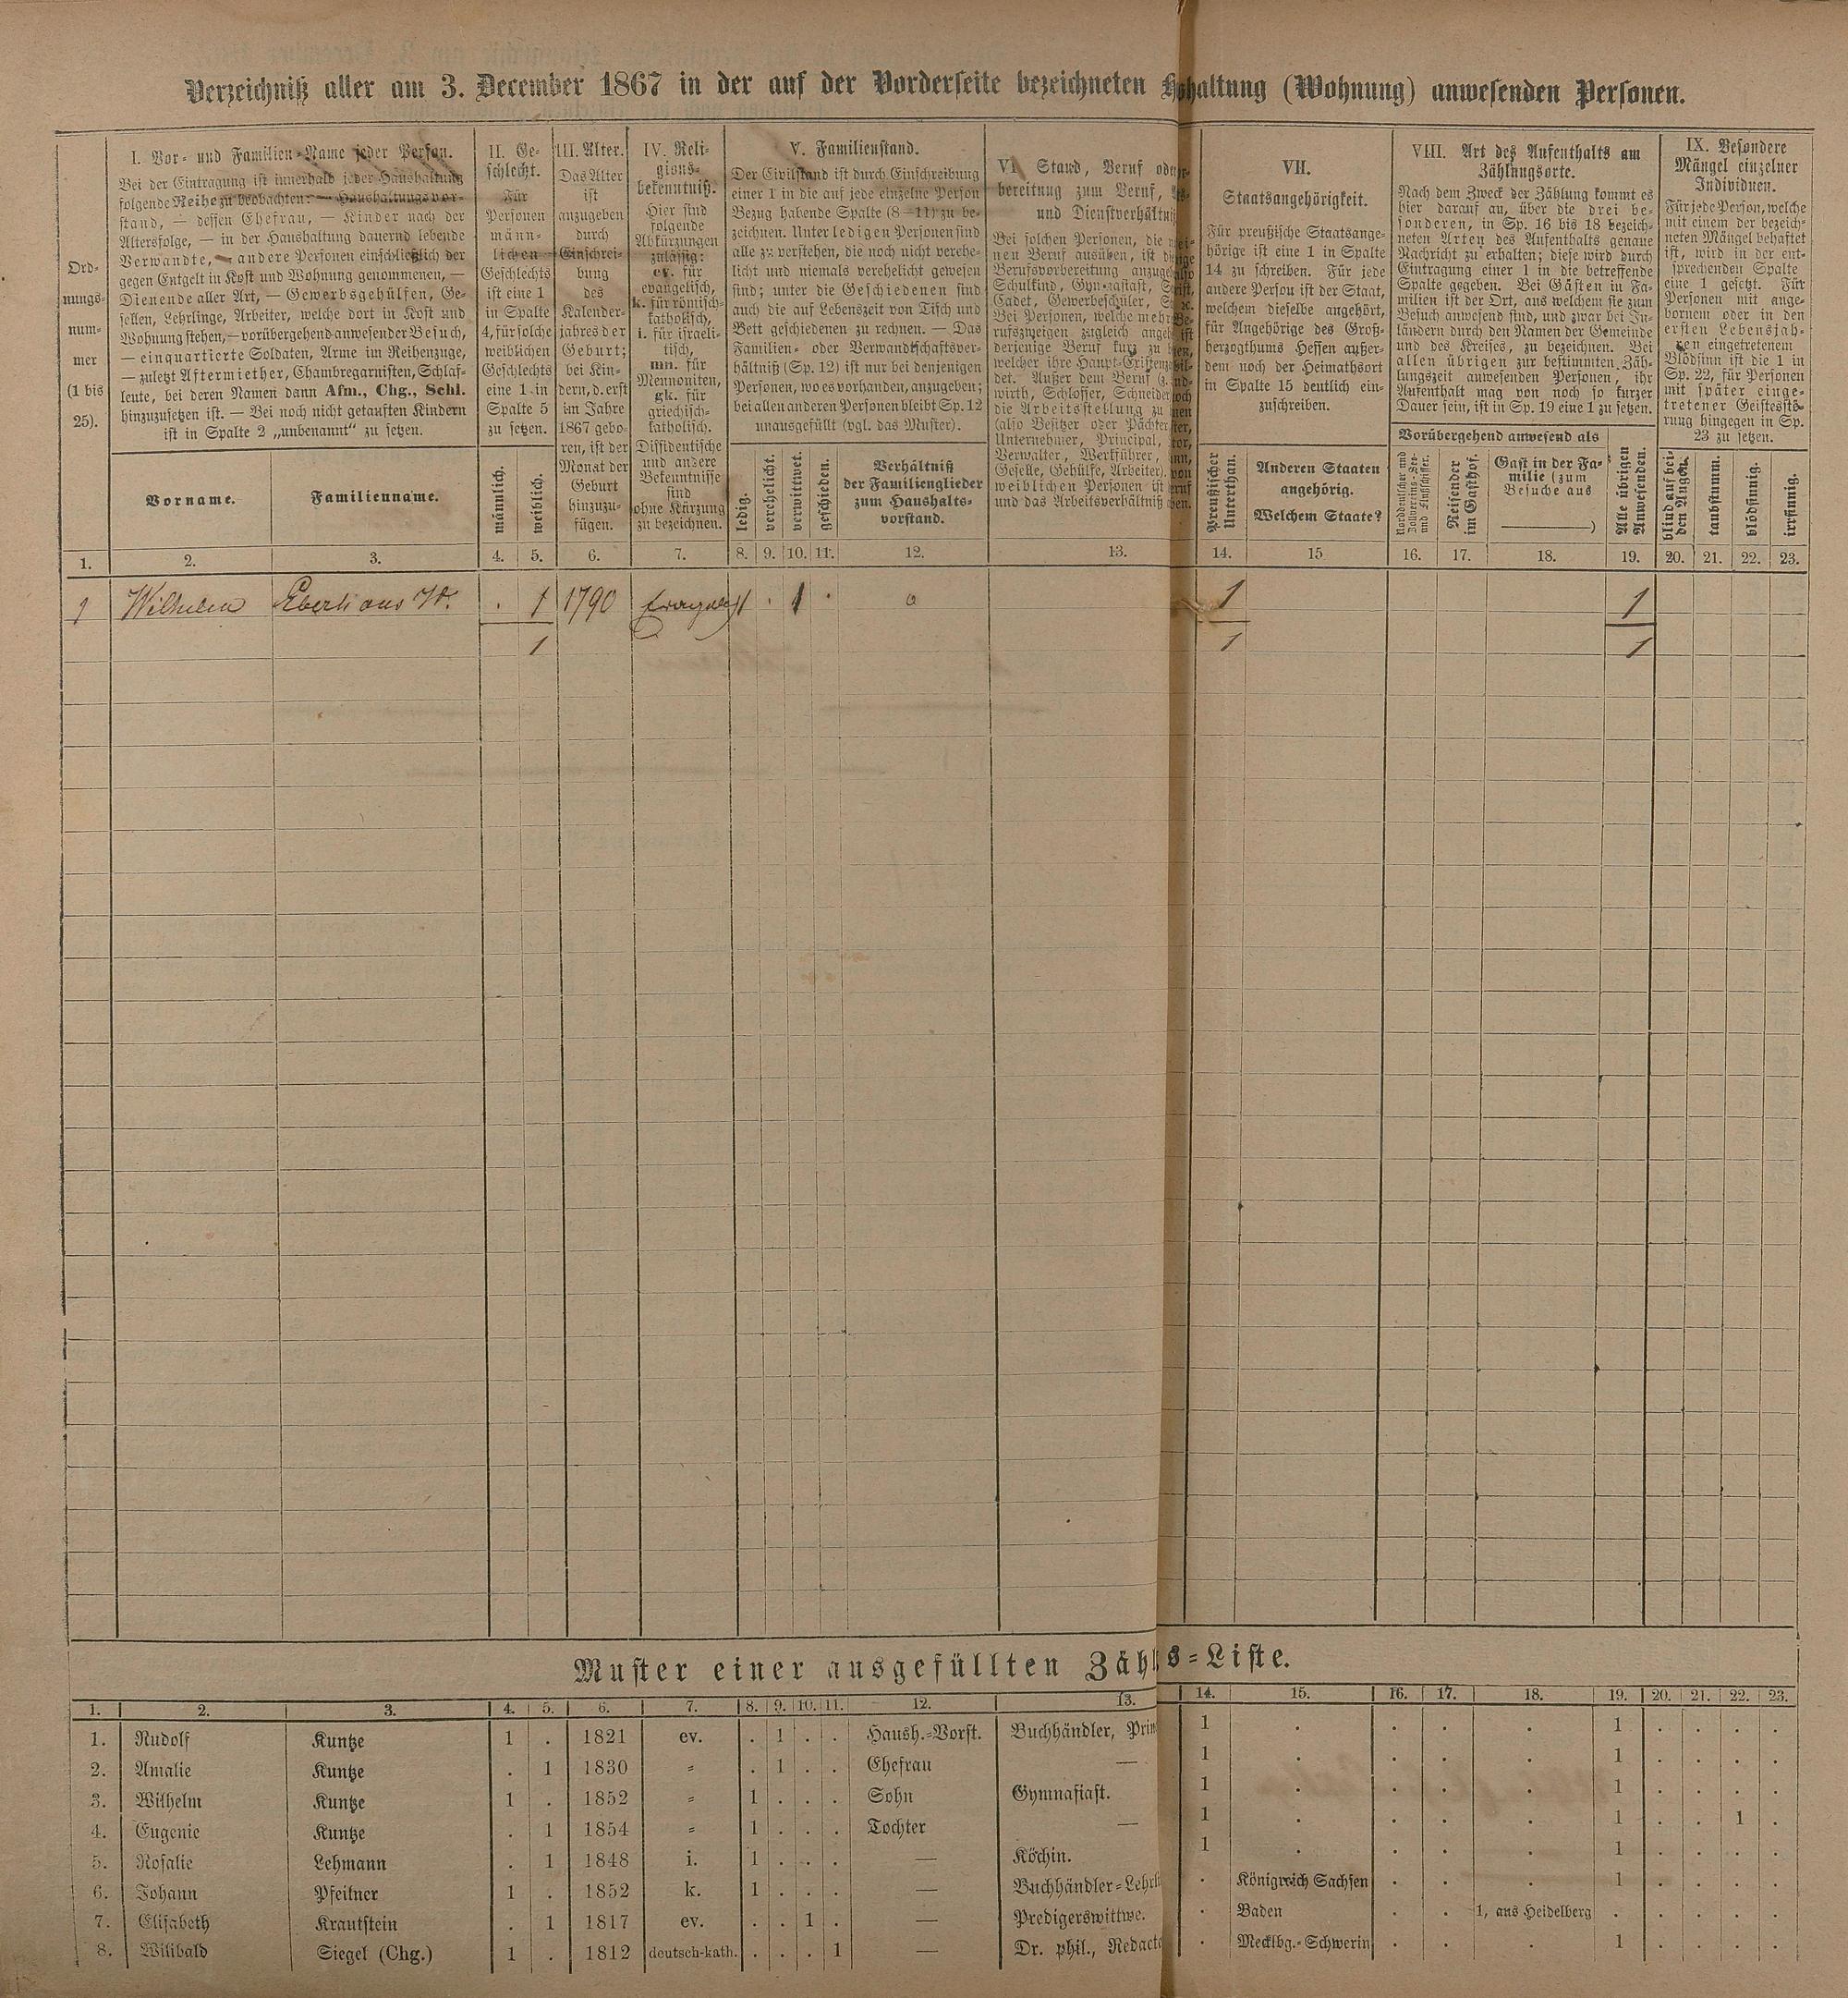 Verzeichniß aller am 3. December 1867 in der auf der Vorderseite bezeichneten haltung (Wohnung) anwesenden Personen.
Ord-
nungs-
num-
mer
(1 bis
25).
I. Vor- und Familien-Name jeder Person.
Bei der Eintragung ist innerhalb jeder Haushaltung
folgende Reihe zu beobachten: — Haushaltungsvor-
stand, — dessen Ehefrau, — Kinder nach der
Altersfolge, — in der Haushaltung dauernd lebende
Verwandte, — andere Personen einschließlich der
gegen Entgelt in Kost und Wohnung genommenen, —
Dienende aller Art, — Gewerbsgehülfen, Ge-
sellen, Lehrlinge, Arbeiter, welche dort in Kost und
Wohnung stehen, — vorübergehend anwesender Besuch,
— einquartierte Soldaten, Arme im Reihenzuge,
— zuletzt Aftermiether, Chambregarnisten, Schlaf-
leute, bei deren Namen dann Afm., Chg., Schl.
hinzuzusetzen ist. — Bei noch nicht getauften Kindern
ist in Spalte 2 „unbenannt“ zu setzen.
Vorname.
Familienname.
II. Ge-
schlecht.
Für
Personen
männ-
lichen
Geschlechts
ist eine 1
in Spalte
4, für solche
weiblichen
Geschlechts
eine 1 in
Spalte 5
zu setzen.
männlich.
weiblich.
III. Alter.
Das Alter
ist
anzugeben
durch
Einschrei-
bung
des
Kalender-
jahres der
Geburt;
bei Kin-
dern, d. erst
im Jahre
1867 gebo-
ren, ist der
Monat der
Geburt
hinzuzu-
fügen.
IV. Reli-
gions-
bekenntniß.
Hier sind
folgende
Abkürzungen
zulässig:
ev. für
evangelisch,
k. für römisch-
katholisch,
i. für israeli-
tisch,
mn. für
Mennoniten,
gk. für
griechisch-
katholisch.
Dissidentische
und andere
Bekenntnisse
sind
ohne Kürzung
zu bezeichnen.
V. Familienstand.
Der Civilstand ist durch Einschreibung
einer 1 in die auf jede einzelne Person
Bezug habende Spalte (8—11) zu be-
zeichnen. Unter ledigen Personen sind
alle zu verstehen, die noch nicht verehe-
licht und niemals verehelicht gewesen
sind; unter die Geschiedenen sind
auch die auf Lebenszeit von Tisch und
Bett geschiedenen zu rechnen. — Das
Familien- oder Verwandtschaftsver-
hältniß (Sp. 12) ist nur bei denjenigen
Personen, wo es vorhanden, anzugeben;
bei allen anderen Personen bleibt Sp. 12
unausgefüllt (vgl. das Muster).
ledig.
verehelicht.
verwittwet.
geschieden.
Verhältniß
der Familienglieder
zum Haushalts-
vorstand.
VI. Stand, Beruf
bereitung zum Beruf,
und Dienstverhältniß
Bei solchen Personen, die
nen Beruf ausüben, ist
Berufsvorbereitung
Schulkind, Gymnasiast,
Cadet, Gewerbeschüler,
Bei Personen, welche
rufszweigen zugleich
derjenige Beruf kurz zu
welcher ihre Haupt-Existenz
det. Außer dem Beruf
wirth, Schlosser, Schneider
die Arbeitsstellung zu
(also Besitzer oder Pächter
Unternehmer, Principal,
Verwalter, Werkführer,
Geselle, Gehülfe, Arbeiter).
weiblichen Personen ist
und das Arbeitsverhältniß
VII.
Staatsangehörigkeit.
Für preußische Staatsange-
hörige ist eine 1 in Spalte
14 zu schreiben. Für jede
andere Person ist der Staat,
welchem dieselbe angehört,
für Angehörige des Groß-
herzogthums Hessen außer-
dem noch der Heimathsort
in Spalte 15 deutlich ein-
zuschreiben.
Preußischer
Unterthan.
Anderen Staaten
angehörig.
Welchem Staate?
VIII. Art des Aufenthalts am
Zählungsorte.
Nach dem Zweck der Zählung kommt es
hier darauf an, über die drei be-
sonderen, in Sp. 16 bis 18 bezeich-
neten Arten des Aufenthalts genaue
Nachricht zu erhalten; diese wird durch
Eintragung einer 1 in die betreffende
Spalte gegeben. Bei Gästen in Fa-
milien ist der Ort, aus welchem sie zum
Besuch anwesend sind, und zwar bei In-
ländern durch den Namen der Gemeinde
und des Kreises, zu bezeichnen. Bei
allen übrigen zur bestimmten Zäh-
lungszeit anwesenden Personen, ihr
Aufenthalt mag von noch so kurzer
Dauer sein, ist in Sp. 19 eine 1 zu setzen.
Vorübergehend anwesend als
Norddeutscher und
Zollvereins-See-
und Flußschiffer.
Reisender
im Gasthof.
Gast in der Fa-
milie (zum
Besuche aus
)
Alle übrigen
Anwesenden.
IX. Besondere
Mängel einzelner
Individuen.
Für jede Person, welche
mit einem der bezeich-
neten Mängel behaftet
ist, wird in der ent-
sprechenden Spalte
eine 1 gesetzt. Für
Personen mit ange-
bornem oder in den
ersten Lebensjah-
ren eingetretenem
Blödsinn ist die 1 in
Sp. 22, für Personen
mit später einge-
tretener Geistesstö-
rung hingegen in Sp.
23 zu setzen.
blind auf bei-
den Augen.
taubstumm.
blödsinnig.
irrsinnig.
1. 2. 3. 4. 5. 6. 7. 8. 9. 10. 11. 12. 13. 14. 15. 16. 17. 18. 19. 20. 21. 22. 23.
1 Wilhelm . 1 1790 . 1 . 1 1
1 1 1
Muster einer ausgefüllten Zähl s-Liste.
1. 2. 3. 4. 5. 6. 7. 8. 9. 10. 11. 12. 13. 14. 15. 16. 17. 18. 19. 20. 21. 22. 23.
1. Rudolf Kuntze 1 . 1821 ev. . 1 . . Haush.-Vorst. Buchhändler, Prin 1 . . . . 1 . . . .
2. Amalie Kuntze . 1 1830 " . 1 . . Ehefrau — 1 . . . . 1 . . . .
3. Wilhelm Kuntze 1 . 1852 " 1 . . . Sohn Gymnasiast. 1 . . . . 1 . . . .
4. Eugenie Kuntze . 1 1854 " 1 . . . Tochter — 1 . . . . 1 . . 1 .
5. Rosalie Lehmann . 1 1848 i. 1 . . . — Köchin. 1 . . . . 1 . . . .
6. Johann Pfeitner 1 . 1852 k. 1 . . . — Buchhändler-Lehrl . Königreich Sachsen . . . 1 . . . .
7. Elisabeth Krautstein . 1 1817 ev. . . 1 . — Predigerswittwe. . Baden . . 1, aus Heidelberg . . . . .
8. Wilibald Siegel (Chg.) 1 . 1812 deutsch-kath. . . . 1 — Dr. phil., Redact . Mecklbg.-Schwerin . . . 1 . . . .